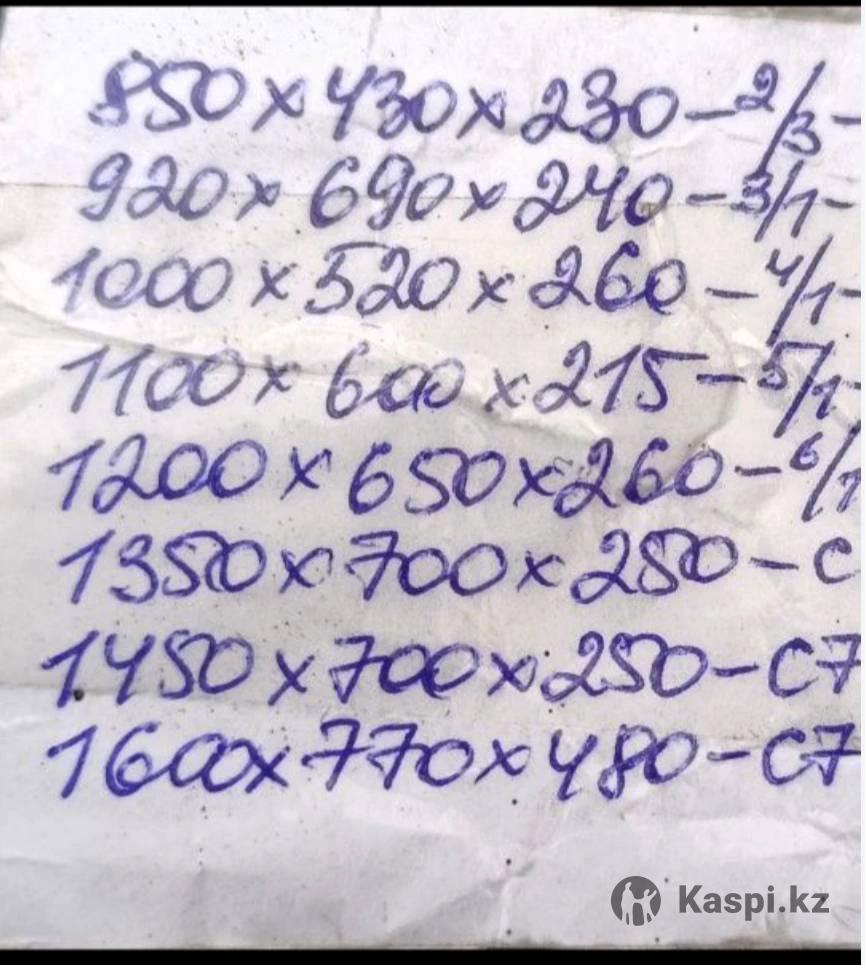 850 x 430 x 230 - 2/3 -
920 x 690 x 240 - 3/1 -
1000 x 520 x 260 - 4/1 -
1100 x 600 x 215 - 5/1 -
1200 x 650 x 260 - 6/1
1350 x 700 x 250 - С
1450 x 700 x 250 - С7
1600 x 770 x 480 - С7
Kaspi.kz